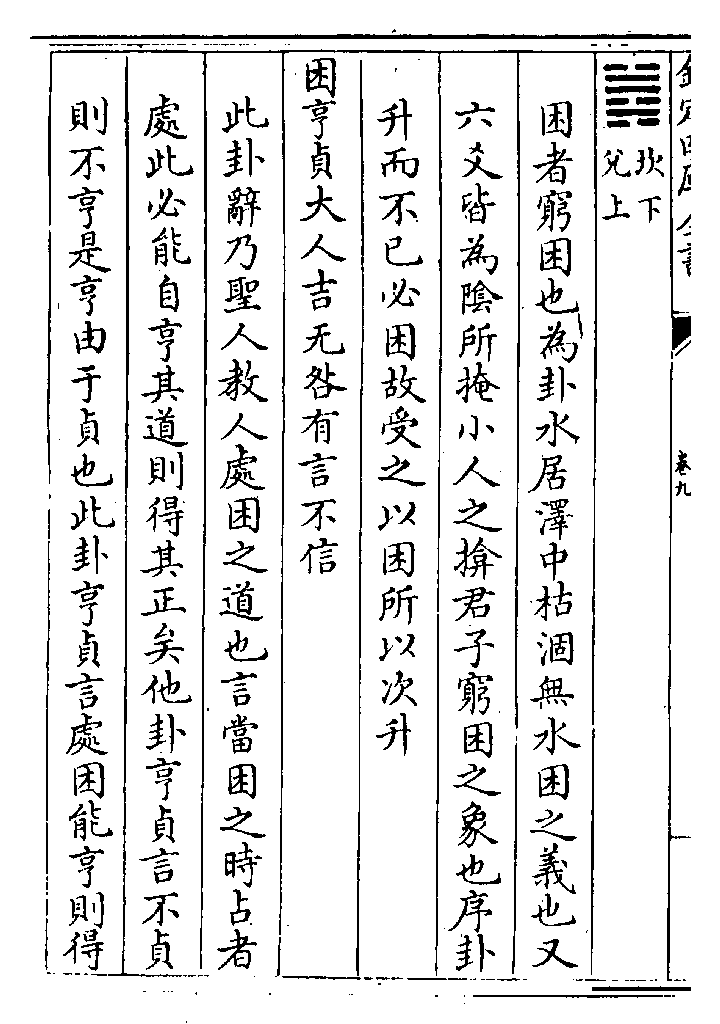 欽定四庫全書
卷九
䷮
坎下
兌上
困者窮困也為卦水居澤中枯涸無水困之義也又
六爻皆為陰所掩小人之揜君子窮困之象也序卦
升而不已必困故受之以困所以次升
困亨貞大人吉无咎有言不信
此卦辭乃聖人教人處困之道也言當困之時占者
處此必能自亨其道則得其正矣他卦亨貞言不貞
則不亨是亨由于貞也此卦亨貞言處困能亨則得